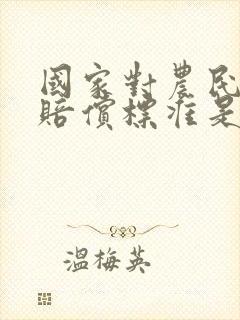 國家對農民
賠償標准是
溫梅英